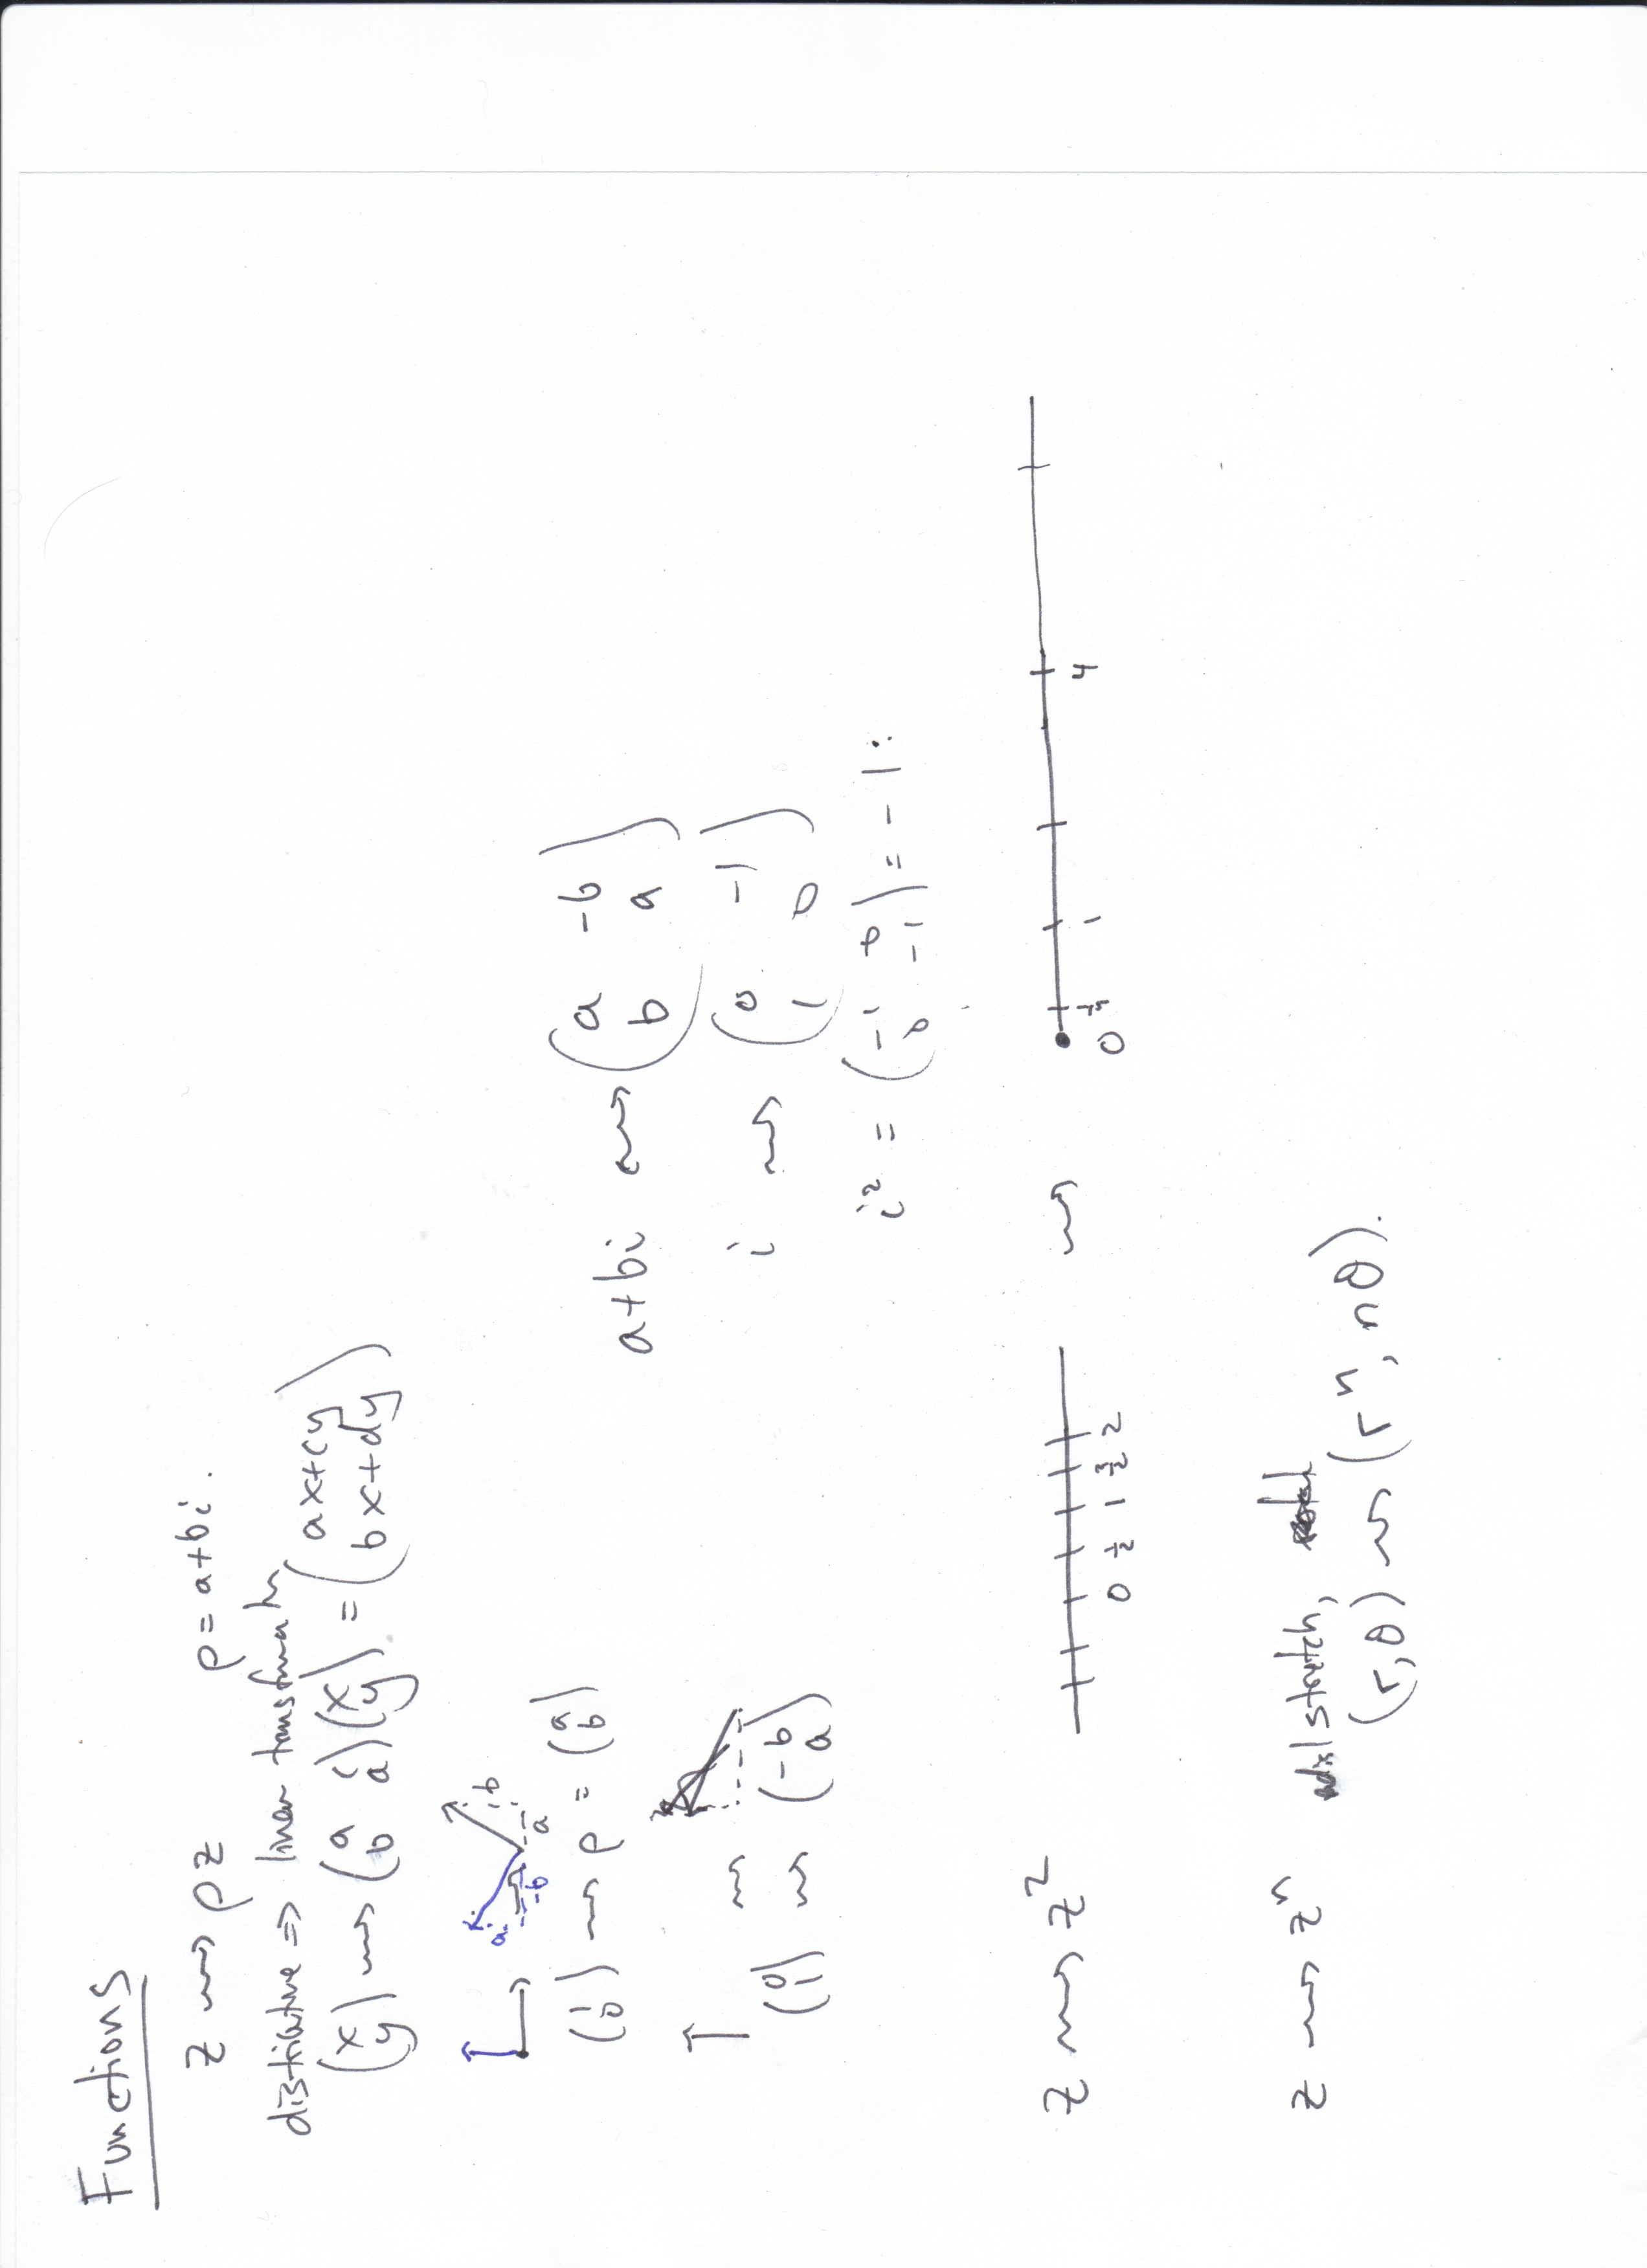 Functions
z ⇝ ρz ρ = a+bi.
distributive ⇒ linear transform
(x y) ⇝ (a c b d)(x y) = (ax+cy bx+dy)
a b -b a
(1 0) ⇝ ρ = (a b)
a+bi ⇝ (a -b b a)
(0 1) ⇝ (-b a)
i ⇝ (0 -1 1 0)
i² = (-1 0 0 -1) = -1.
z ⇝ z² 0 ½ 1 3/2 2 ⇝ 0 ¼ 1 4
z ⇝ zⁿ stretch,
(r, θ) ⇝ (rⁿ, nθ).